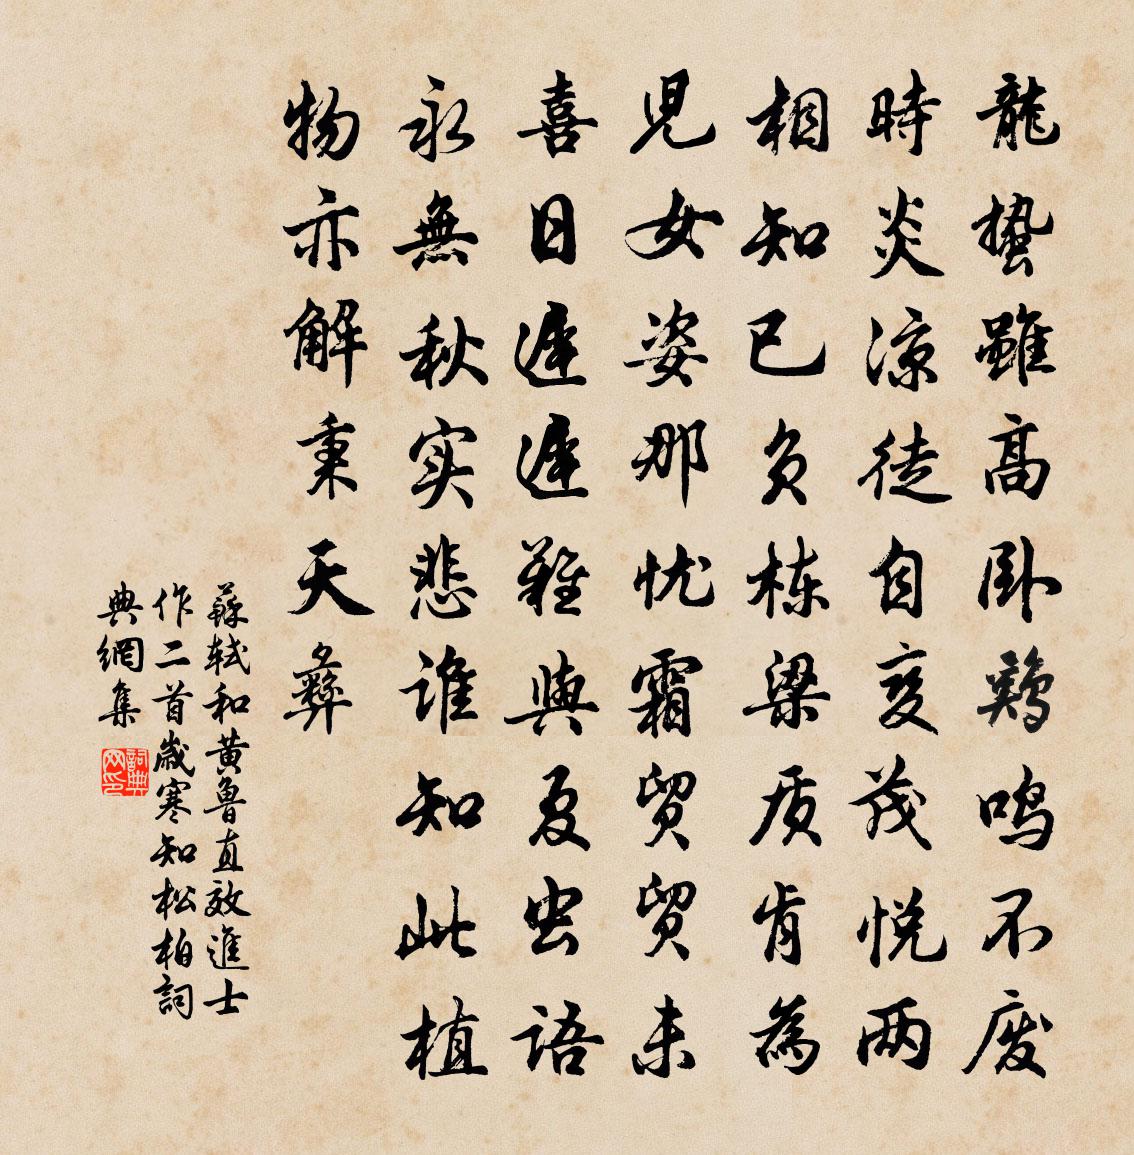 龍蟄雖高卧鷄鳴不废
時炎凉徒自变茂悦两
相知已负栋梁质肯為
児女姿那忧霜貿貿未
喜日遲遲難與夏虫语
永無秋实悲谁知此植
物亦解秉天彝
蘇轼和黄魯直效進士
作二首歲寒知松柏詞
典網集
詞典网印